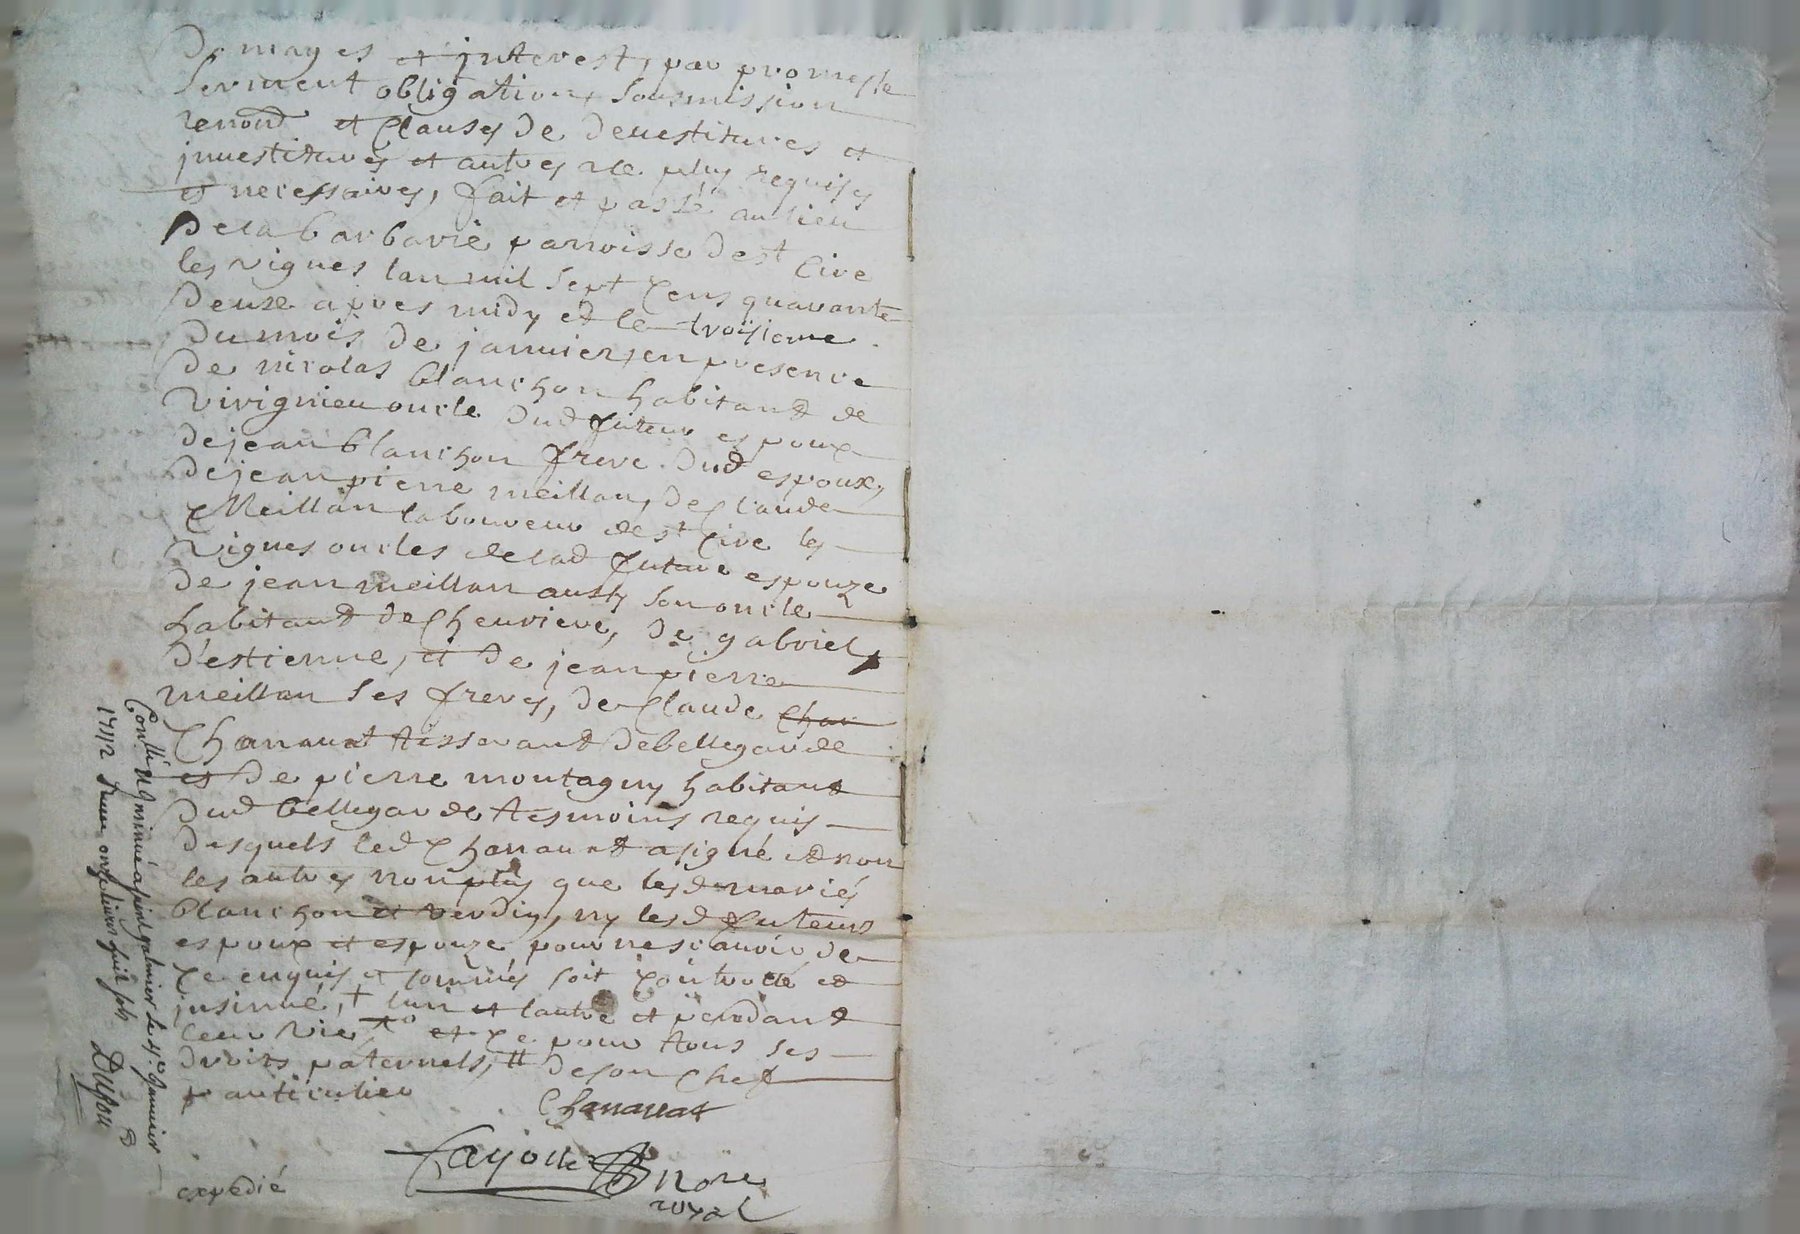 Domages et jnterest, par promesse
serment obligation, soubmission
renond et Clauses de deuestitures et
jnuestitures et autres a ce plus requises
et necessaires, fait et passé au lieu
De la barbarie parroisse de st Cire
les vignes lan mil sept Cens quarante
Deux apres midy et le troisieme
Du mois de januier, en presence
De nicolas blanchon habitant de
Virignieu oncle dud futeur espoux
De jean blanchon frere dud espoux,
De jean pierre meillan, de Claude
Meillan laboureur de st Cire les
Vignes oncles de lad future espouze
De jean meillan aussy son oncle
habitant de Cheuriere, de gabriel
D'estienne, et de jean pierre
meillan ses freres, de Claude Cha
Chanauat tisserant de bellegarde
et de pierre montagny habitant
Dud bellegarde tesmoins requis
Desquels led Chanauat a signé et non
les autres non plus que lesd mariés
blanchon et verdin, ny lesd futeurs
espoux et espouze pour ne scauoir de
Ce enquis et sommés soit Controllé et
jnsinué, + lun et lautre et pendant
leur vie et Ce pour tous ses
Droits paternels, # de son Chef
particulier
Chanauat
Fayolle
nore
royal
expedié
Conllé et jnsinué a st galmier le 4e januier
1742 Receu onze liures huit sols